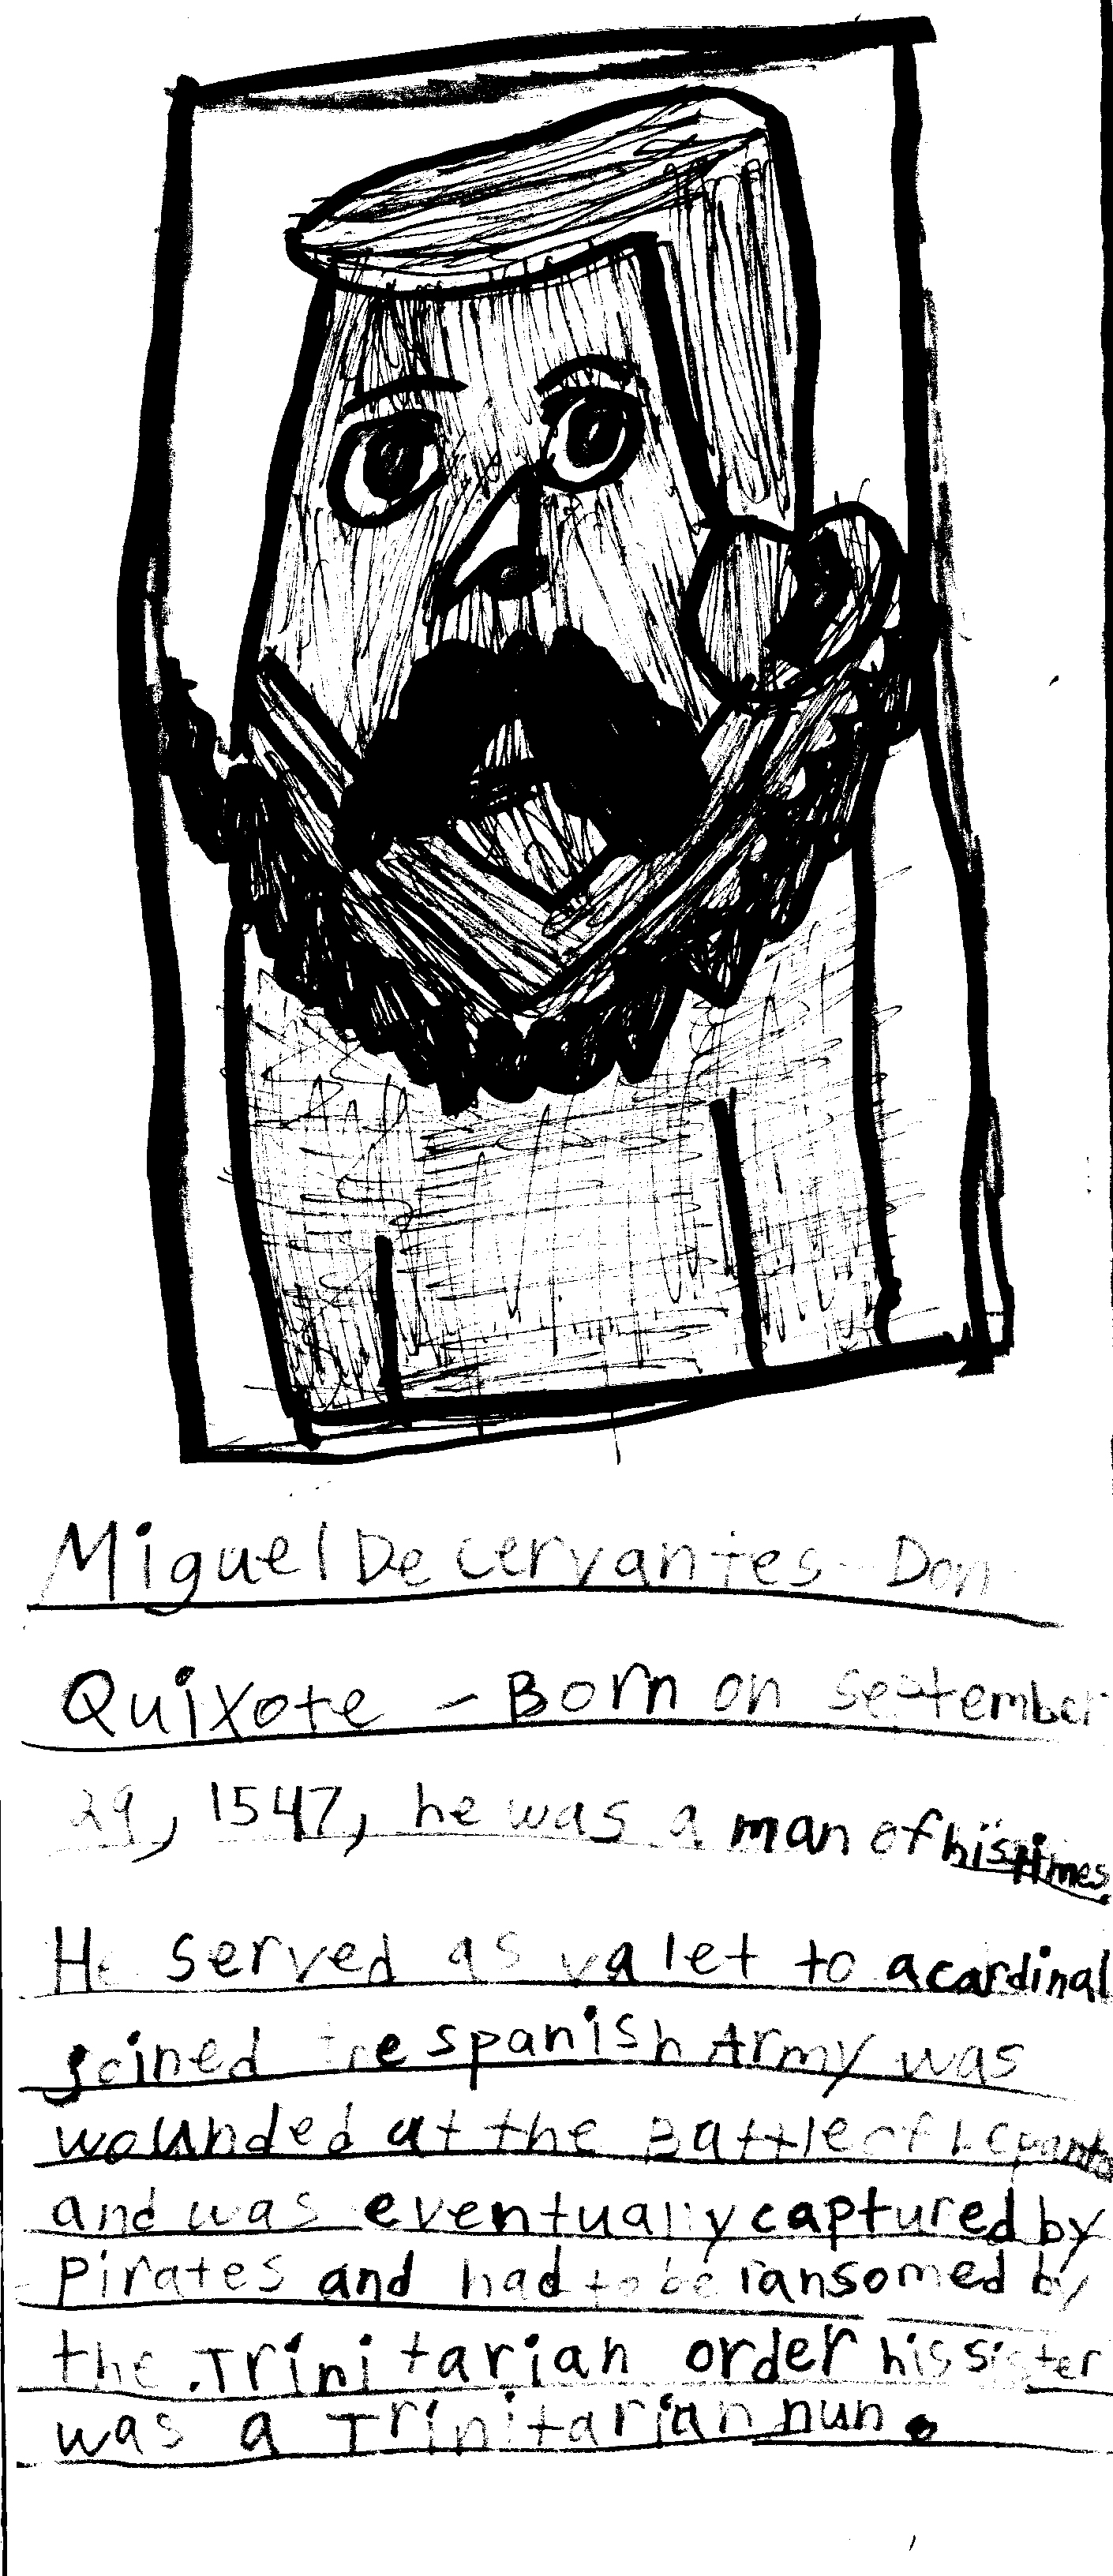 Miguel De Cervantes - Don
Quixote - Born on September
29, 1547, he was a man of his times
He served as valet to a cardinal
joined the Spanish Army was
wounded at the Battle of Lepanto
and was eventually captured by
pirates and had to be ransomed by
the Trinitarian order his sister
was a Trinitarian nun.